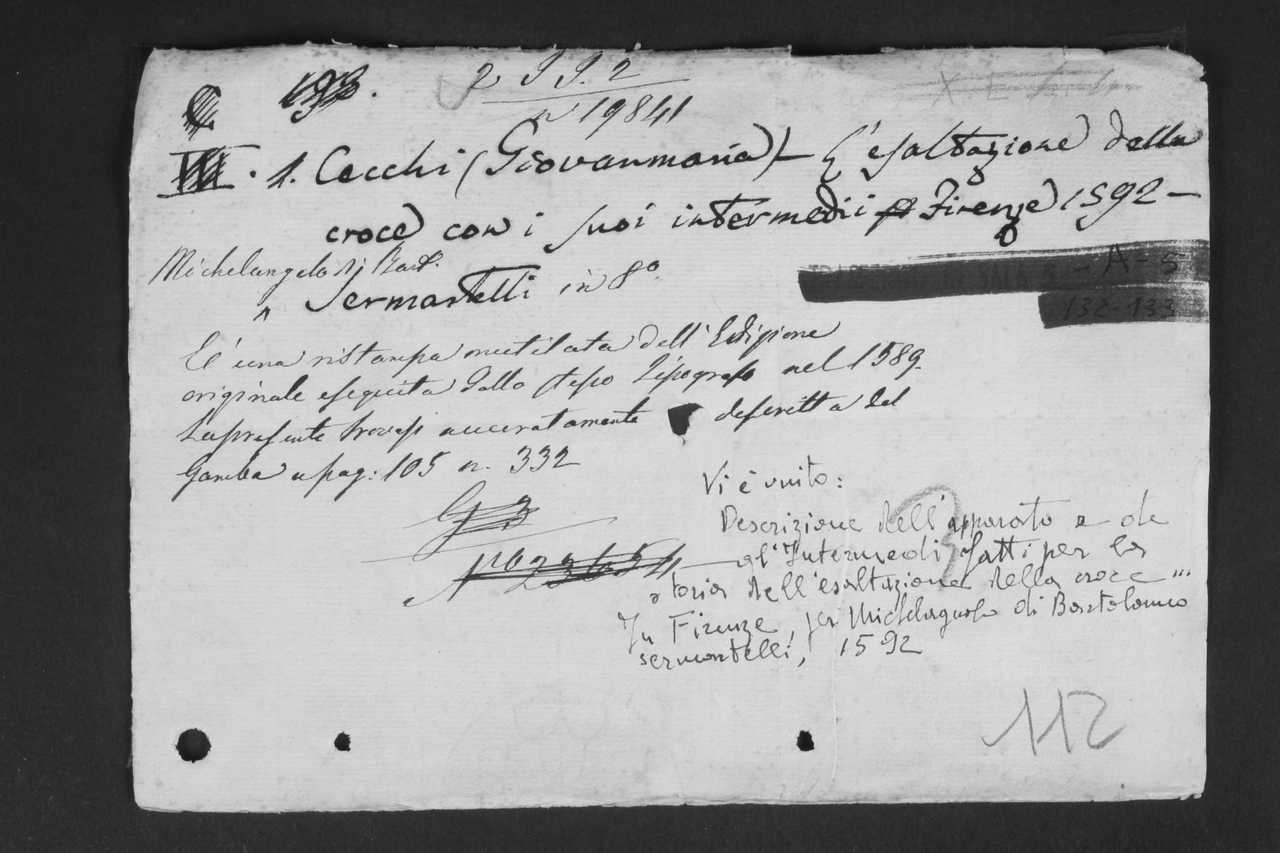 2 II. 2
n 19841
1. Cecchi (Giovanmaria) - L'esaltazione della
croce con i suoi intermedii Firenze 1592 -
Michelangelo di Bart.
Sermartelli in 8º
È una ristampa mutilata dell'Edizione
originale eseguita dallo stesso Tipografo nel 1589.
La presente trovasi accuratamente descritta dal
Gamba a pag: 105 n. 332
Vi è unito:
Descrizione dell'apparato e de
gl'Intermedi fatti per la
storia dell'esaltazione della croce "...
In Firenze, per Michelagnolo di Bartolomeo
sermartelli, 1592
A - 5
132-133
112